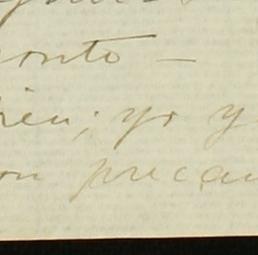 onto —
ien; yo y
on precau